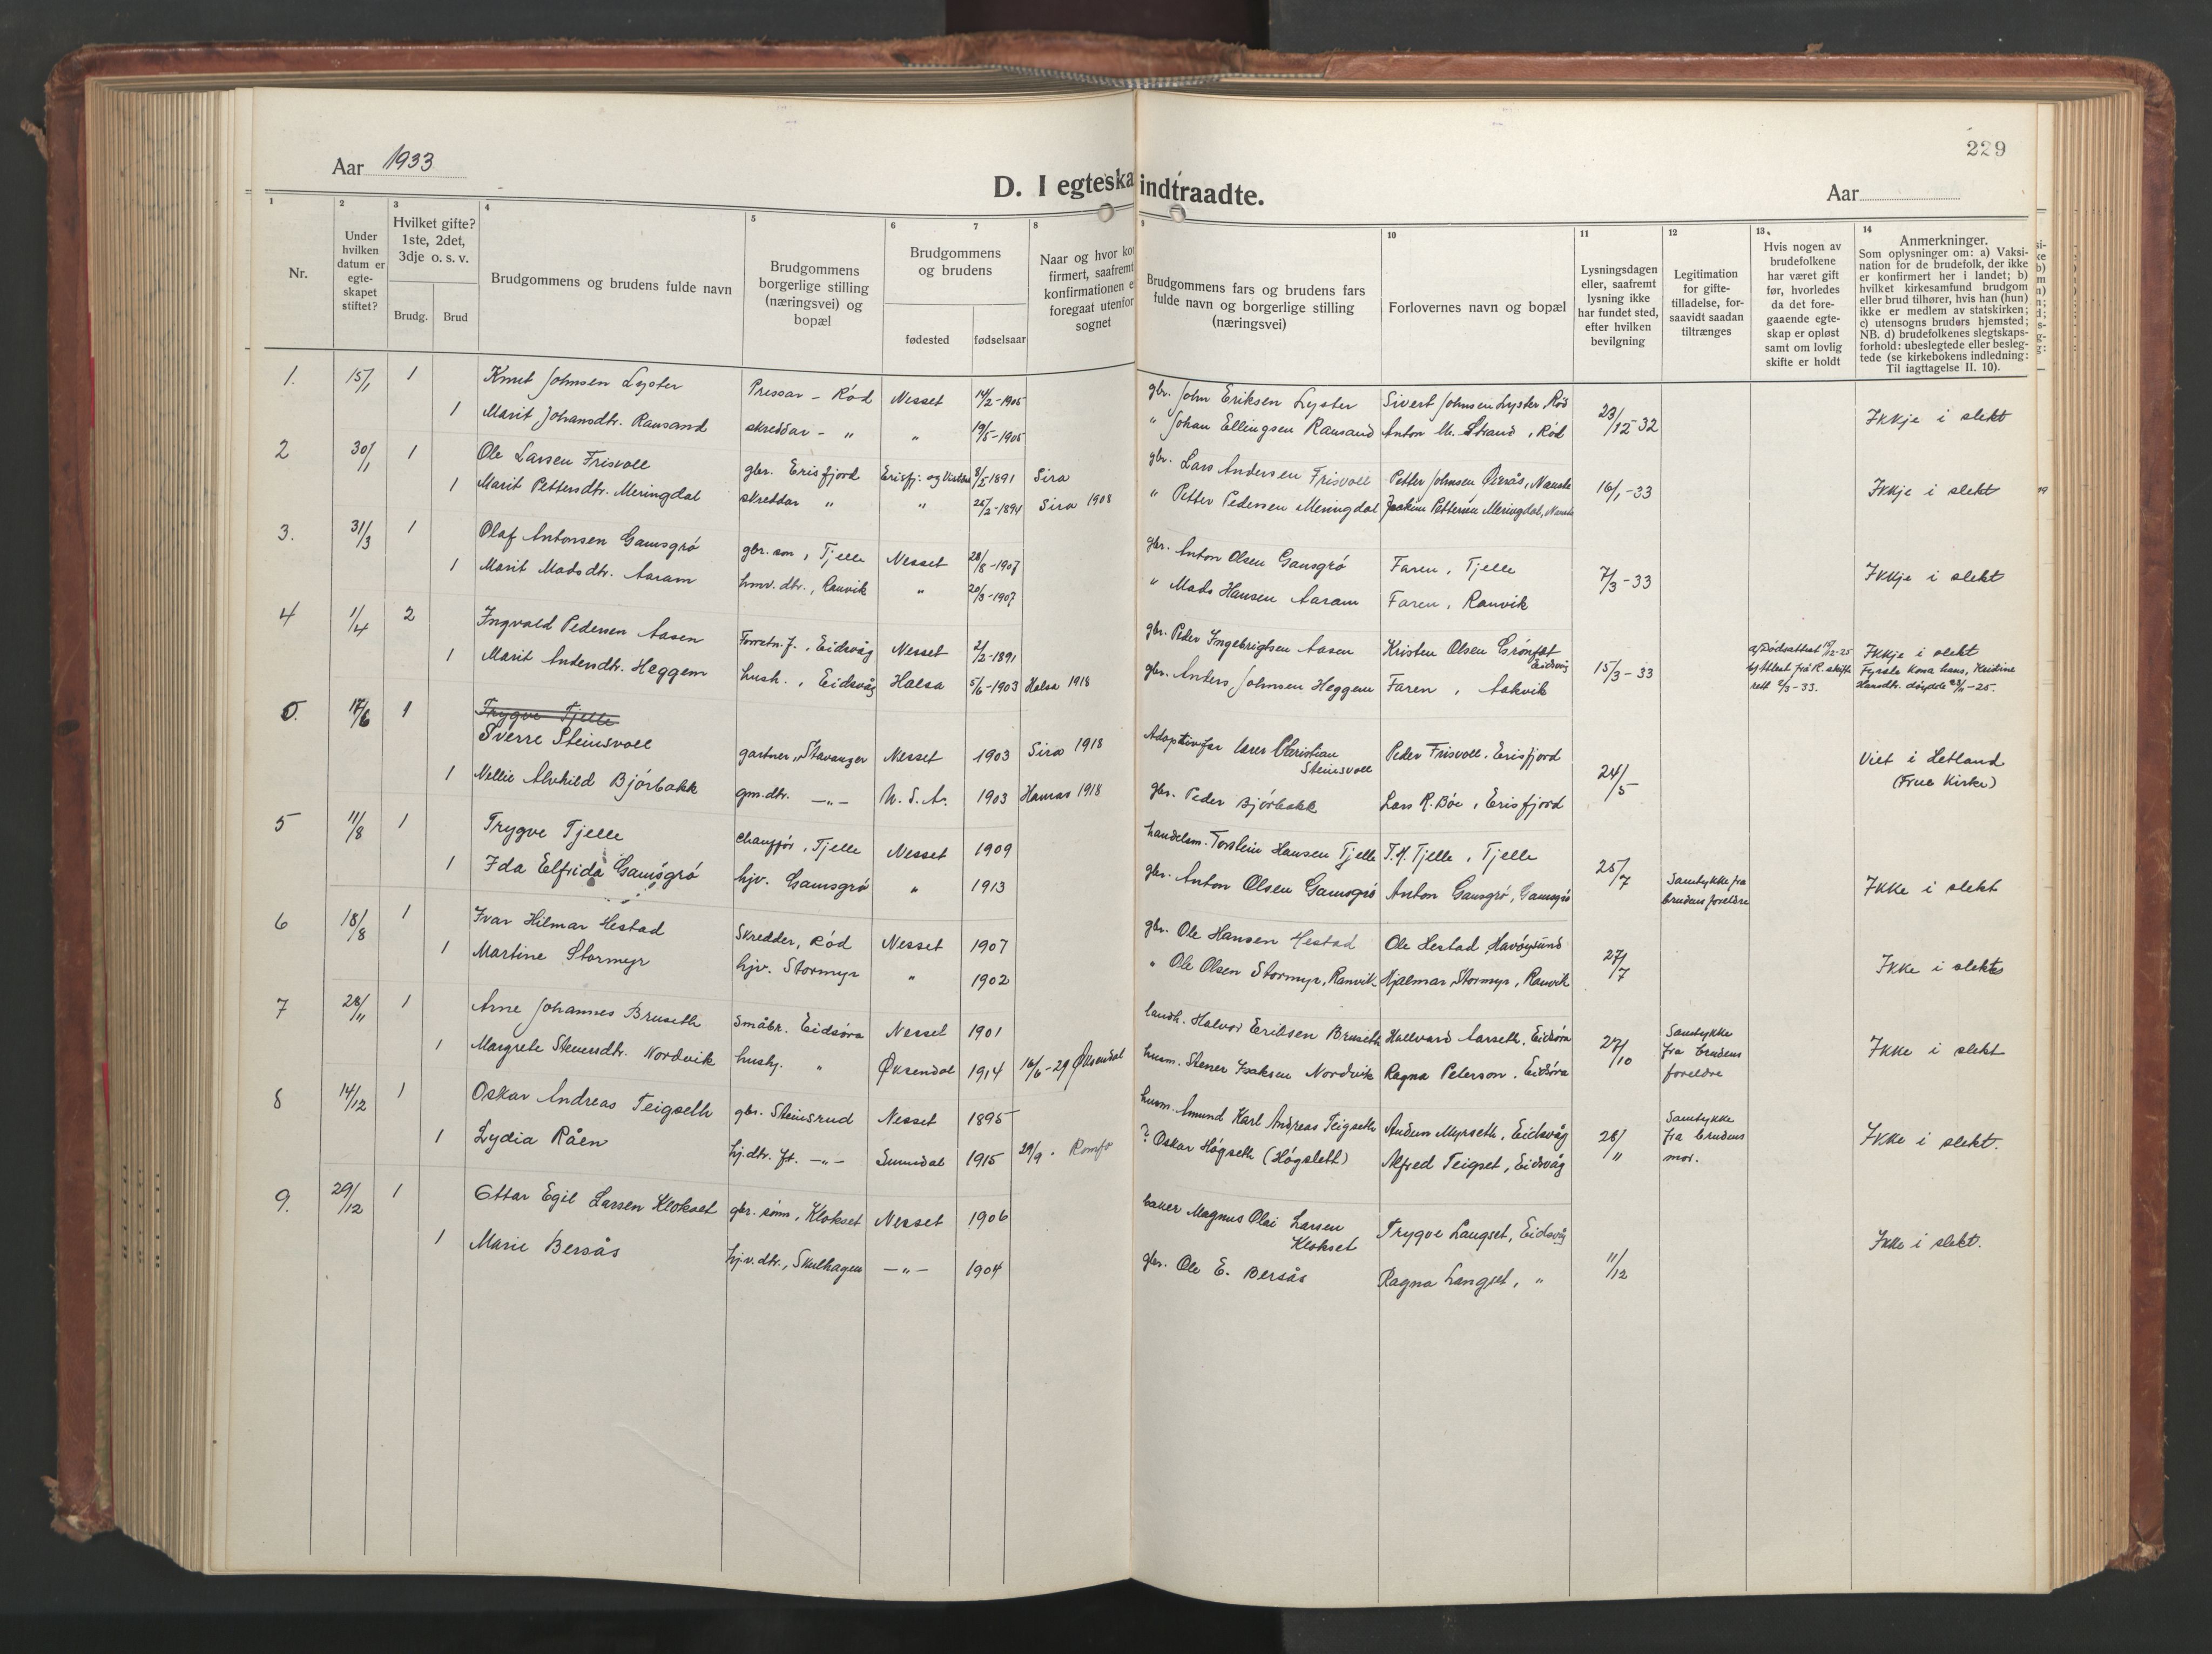 Aar 1933
229
D. I egteska indtraadte.
Aar
1 2 3 4 5 6 7 8 9 10 11 12 13 14
Nr.
Under hvilken datum er egte-skapet stiftet?
Hvilket gifte? 1ste, 2det, 3dje o. s. v.
Brudg. Brud
Brudgommens og brudens fulde navn
Brudgommens borgerlige stilling (næringsvei) og bopæl
Brudgommens og brudens
fødested fødselsaar
Naar og hvor kon firmert, saafremt konfirmationen e foregaat utenfor sognet
Brudgommens fars og brudens fars fulde navn og borgerlige stilling (næringsvei)
Forlovernes navn og bopæl
Lysningsdagen eller, saafremt lysning ikke har fundet sted, efter hvilken bevilgning
Legitimation for gifte-tilladelse, for-saavidt saadan tiltrænges
Hvis nogen av brudefolkene har været gift før, hvorledes da det fore-gaaende egte-skap er opløst samt om lovlig skifte er holdt
Anmerkninger. Som oplysninger om: a) Vaksi-nation for de brudefolk, der ikke er konfirmert her i landet; b) hvilket kirkesamfund brudgom eller brud tilhører, hvis han (hun) ikke er medlem av statskirken; c) utensogns bruders hjemsted; NB. d) brudefolkenes slegtskaps-forhold: ubeslegtede eller besleg-tede (se kirkebokens indledning: Til iagttagelse II. 10).
1. 15/1 1 Knut Johnsen Lyster Pressar - Rød Nesset 14/2-1905 gbr. John Eriksen Lyster Sivert Johnsen Lyster, Rød 23/12-32 Ikkje i slekt
1 Marit Johansdtr. Ransand skreddar - " " 19/5-1905 " Johan Ellingsen Ransand Anton M. Strand, Rød
2 30/1 1 Ole Larsen Frisvoll gbr. Erisfjord Erisfj. og Vistdal 8/5 1891 Sira gbr. Lars Andersen Frisvoll Petter Johnsen Øverås, Nauste 16/1-33 Ikkje i slekt
1 Marit Pettersdtr. Meringdal skreddar " " 25/2-1894 Sira 1908 " Petter Pedersen Meringdal Joakim Pettersen Meringdal, Nauste
3. 31/3 1 Olaf Antonsen Gamsgrø gbr. son, Tjelle Nesset 28/8-1907 gbr. Anton Olsen Gamsgrø Faren, Tjelle 7/3-33 Ikkje i slekt
1 Marit Madsdtr. Aaram hmv. dtr., Ranvik " 20/3-1907 " Mads Hansen Aaram Faren, Ranvik
4 1/4 2 Ingvald Pedersen Aasen Forretn.f., Eidsvåg Nesset 2/2-1891 gbr. Peder Ingebrigtsen Aasen Kristen Olsen Grønset Eidsvåg 15/3-33 a) Dødsattest 15/12-25 b) Attest frå R. skifterett 2/3-33. Ikkje i slekt Fyrste kona hans, Kristine Hansdtr. døydde 23/11-25.
1 Marit Andersdtr. Heggem hush., Eidsvåg Halsa 5/6-1903 Halsa 1918 gbr. Anders Johnsen Heggem Faren, Aakvik
5. 17/6 1 Trygve Tjelle
Sverre Steinsvoll gartner, Stavanger Nesset 1903 Sira 1918 Adoptivfar lærer Christian Steinsvoll Peder Frisvoll, Erisfjord 24/5 Viet i Letland (Frue Kirke)
1 Nellie Alvhild Bjørbakk gm.dtr. -"- U.S.A. 1903 1918 gbr. Peder Bjørbakk Lars R. Bøe, Erisfjord
5 11/8 1 Trygve Tjelle chauffør, Tjelle Nesset 1909 handelsm. Torstein Hansen Tjelle T.H. Tjelle, Tjelle 25/7 Samtykke fra brudens foreldre Ikke i slekt
1 Ida Elfrida Gamsgrø hjv. Gamsgrø " 1913 gbr. Anton Olsen Gamsgrø Anton Gamsgrø, Gamsgrø
6 18/8 1 Ivar Hilmar Hestad Skredder, Rød Nesset 1907 gbr. Ole Hansen Hestad Ole Hestad, Havøysund 27/7 Ikke i slekt
1 Martine Stormyr hjv. Stormyr " 1902 " Ole Olsen Stormyr, Ranvik Hjalmar Stormyr, Ranvik
7 28/11 1 Arne Johannes Bruseth småbr. Eidsøra Nesset 1901 landh. Halvor Eriksen Bruseth Hallvard Aarseth, Eidsøra 27/10 Samtykke fra brudens foreldre Ikke i slekt
1 Margrete Stenersdtr. Nordvik hushj. " Øksendal 1914 16/6-29 Øksendal husm. Stener Isaksen Nordvik Ragna Peterson, Eidsøra
8 14/12 1 Oskar Andreas Teigseth gbr. Steinsrud Nesset 1895 husm. Amund Karl Andreas Teigseth Audun Myrseth, Eidsvåg 28/11 Samtykke fra brudens mor. Ikke i slekt.
1 Lydia Råen hj.dtr. ft. -"- Sunndal 1915 29/9 - Romfo ? Oskar Høgseth (Høgslett) Alfred Teigset, Eidsvåg
9. 29/12 1 Ottar Egil Larsen Klokset gbr. sønn, Klokset Nesset 1906 baker Magnus Olai Larsen Klokset Trygve Langset, Eidsvåg 11/12 Ikke i slekt.
1 Marie Bersås hjv.dtr., Skulhagen -"- 1904 gbr. Ole E. Bersås Ragna Langset, "